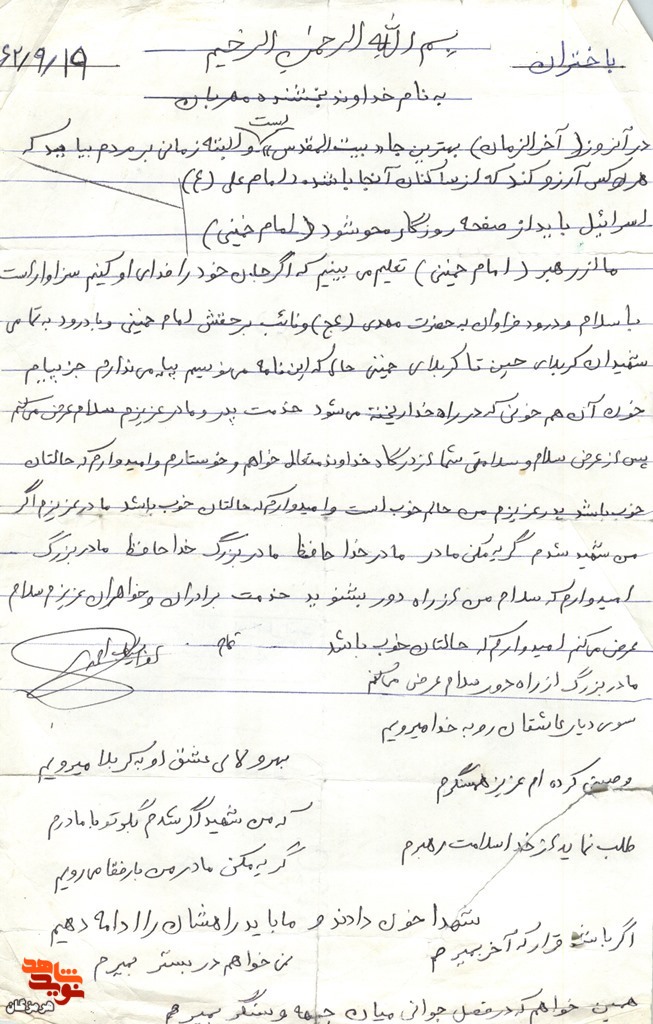 باختران
بسم الله الرحمن الرحیم
۶۲/۹/۱۵
به نام خداوند بخشنده مهربان
در آنروز (آخرالزمان) بهترین جا «بیت المقدس» است و البته زمانی بر مردم بیاید که
هر کس آرزو کند که از ساکنان آنجا باشد (امام علی (ع)
اسرائیل باید از صفحه روزگار محو شود (امام خمینی)
ما از رهبر (امام خمینی) تعلیم می بینیم که اگر جان خود را فدای او کنیم سزاوار است
با سلام و درود فراوان به حضرت مهدی (عج) و نائب بر حقش امام خمینی و با درود به تمامی
شهیدان کربلای حسین تا کربلای خمینی حالی که این نامه می نویسیم پیامی ندارم جز پیام
خون آن هم خونی که در راه خدا ریخته می شود خدمت پدر و مادر عزیزم سلام عرض می کنم
پس از عرض سلام و سلامتی شما از درگاه خداوند متعال خواهم و خوستارم و امیدوارم که حالتان
خوب باشد پدر عزیزم من حالم خوب است و امیدوارم که حالتان خوب باشد مادر عزیزم اگر
من شهید شدم گریه مکن مادر مادر خدا حافظ مادر بزرگ خدا حافظ مادر بزرگ
امیدوارم که سلام من از راه دور بشنوید خدمت برادران و خواهران عزیزم سلام
عرض می کنم امیدوارم که حالتان خوب باشد تمام
مادر بزرگ از راه دور سلام عرض می کنم
سوی دیار عاشقان رو به خدا میرویم
بهر ولای عشق او به کربلا میرویم
وصیتی کرده ام عزیز همسنگرم
که من شهید اگر شدم بگو تو با مادرم
طلب نماید از خدا سلامت رهبرم
گریه مکن مادر من با رفقا می رویم
شهدا خون دادند و ما باید راهشان را ادامه دهیم
اگر باشد قرار که آخر بمیرم
نمی خواهم در بستر بمیرم
همین خواهم که در فصل جوانی میان جبهه و سنگر بمیرم
نوید شاهد
هرمزگان